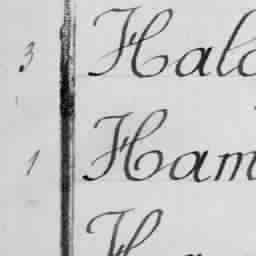 3 Hald
1 Ham
H